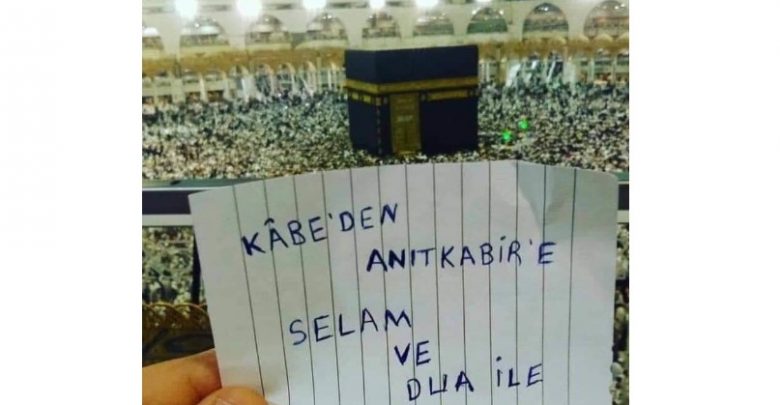 KÂBE'DEN
ANITKABİR'E
SELAM
VE
DUA İLE